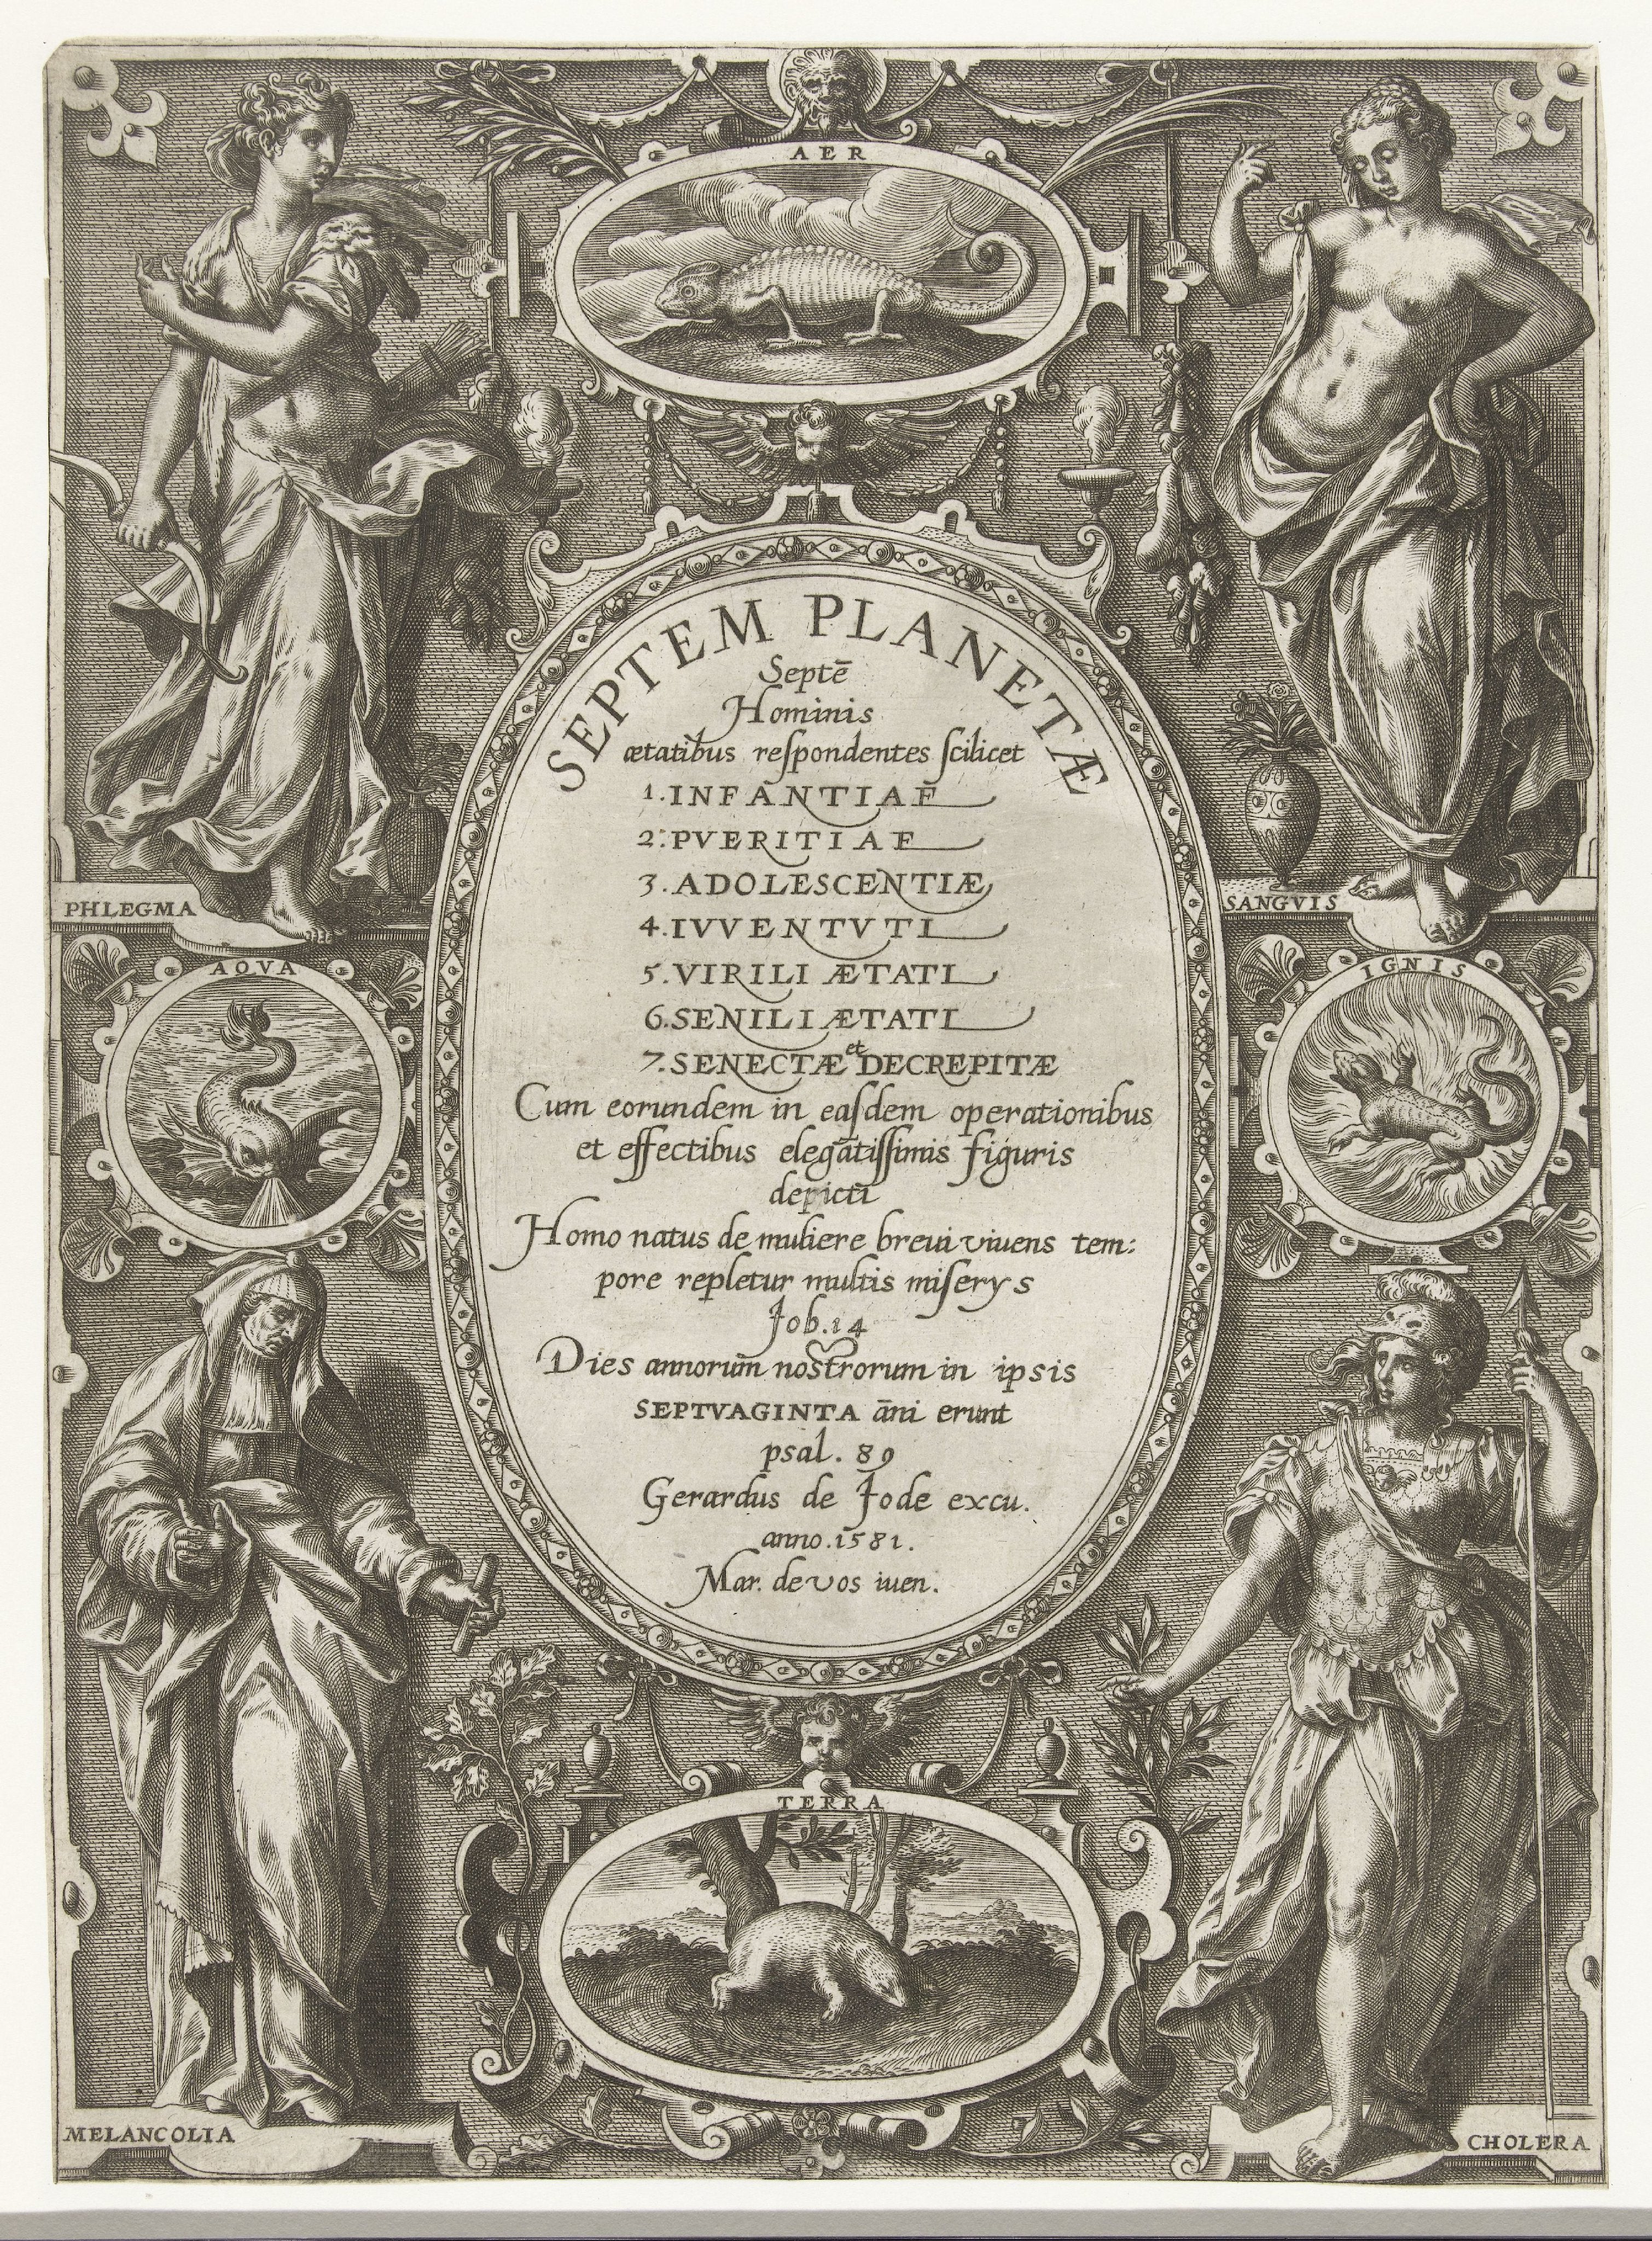 AER
SEPTEM PLANETÆ
Septē
Hominis
ætatibus reſpondentes ſcilicet
1. INFANTIAE
2. PVERITIAE
3. ADOLESCENTIÆ
4. IVVENTVTI
5. VIRILI ÆTATI
6. SENILI ÆTATI
7. SENECTÆ et DECREPITÆ
Cum eorundem in eaſdem operationibus
et effectibus elegātiſſimis figuris
depicti
Homo natus de muliere breui viuens tem:
pore repletur multis miſerys
Job. 14
Dies annorum nostrorum in ipsis
SEPTVAGINTA āni erunt
psal. 89
Gerardus de Jode excu.
anno. 1581.
Mar. de vos iuen.
PHLEGMA
SANGVIS
AQVA
IGNIS
TERRA
MELANCOLIA
CHOLERA